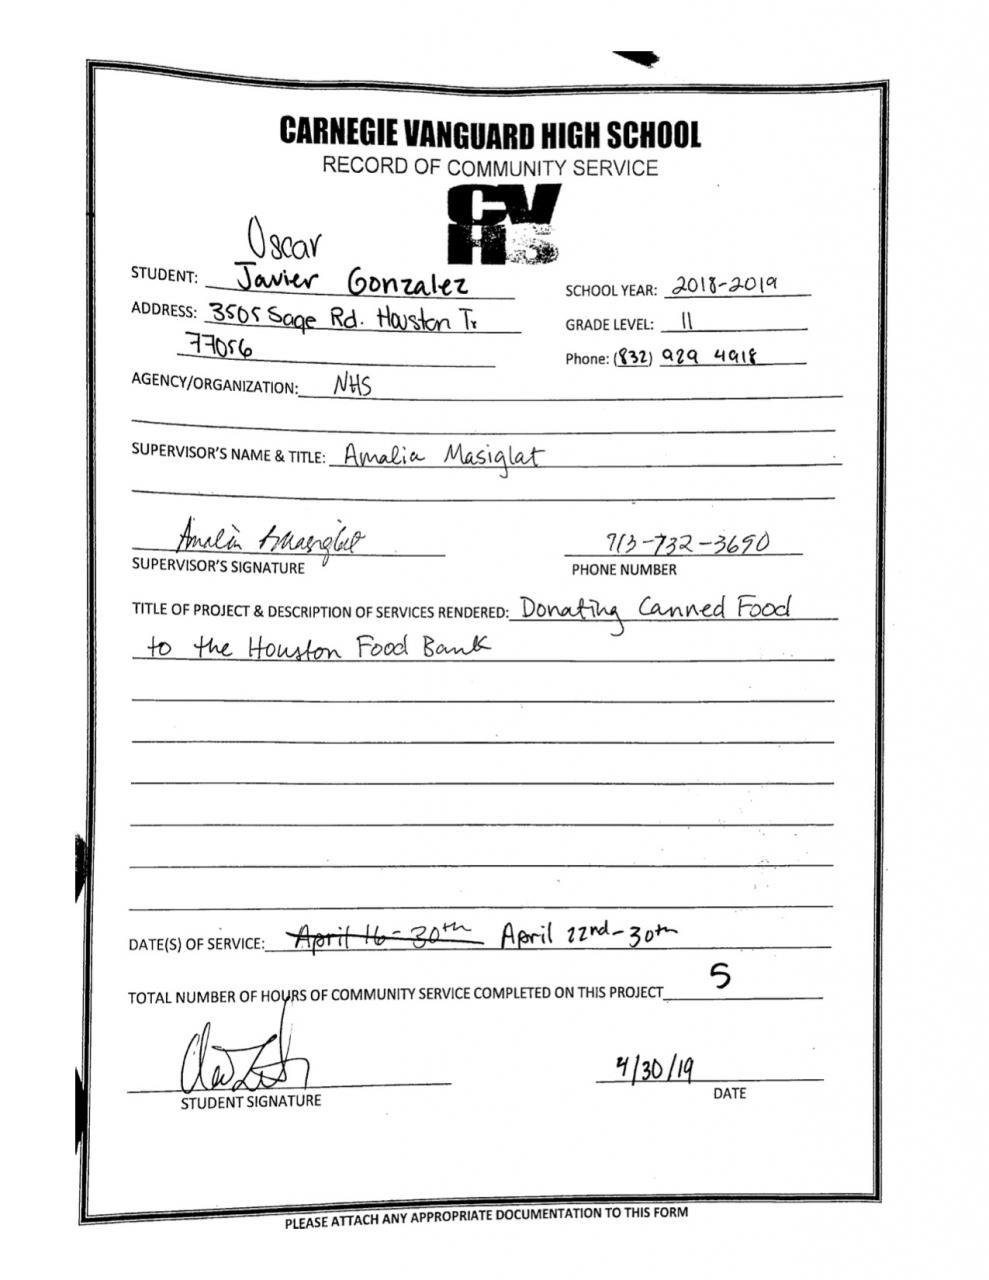 CARNEGIE VANGUARD HIGH SCHOOL
RECORD OF COMMUNITY SERVICE
CV
HS
Oscar
STUDENT: Javier Gonzalez
SCHOOL YEAR: 2018-2019
ADDRESS: 3505 Sage Rd. Houston Tx
GRADE LEVEL: 11
77056
Phone: (832) 929 4918
AGENCY/ORGANIZATION: NHS
SUPERVISOR'S NAME & TITLE: Amalia Masiglat
Amalia Masiglat 713-732-3690
SUPERVISOR'S SIGNATURE PHONE NUMBER
TITLE OF PROJECT & DESCRIPTION OF SERVICES RENDERED: Donating Canned Food
to the Houston Food Bank
DATE(S) OF SERVICE: April 16-30th April 22nd-30th
TOTAL NUMBER OF HOURS OF COMMUNITY SERVICE COMPLETED ON THIS PROJECT 5
4/30/19
STUDENT SIGNATURE DATE
PLEASE ATTACH ANY APPROPRIATE DOCUMENTATION TO THIS FORM